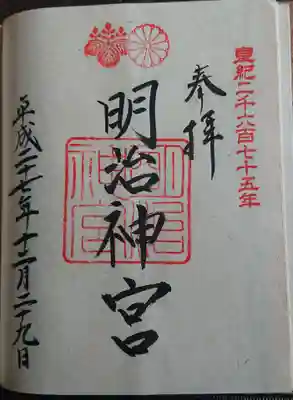 皇紀二千六百七十五年
奉拝
明治神宮
平成二十七年十二月二十九日
明治神宮